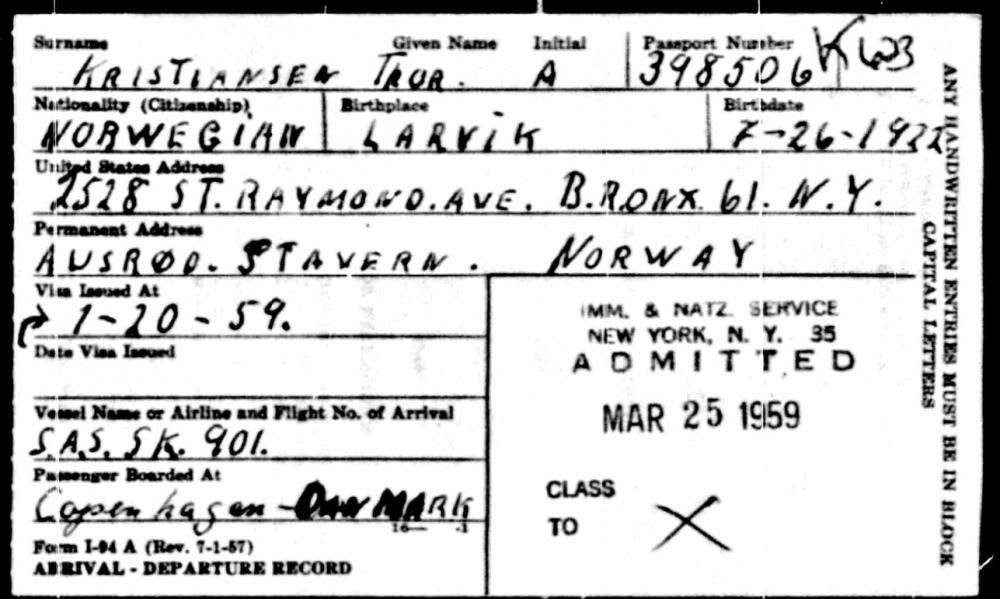 Surname Given Name Initial Passport Number
KRISTIANSEN THOR. A 398506
Nationality (Citizenship) Birthplace Birthdate
NORWEGIAN LARVIK 7-26-1922
United States Address
2528 ST. RAYMOND. AVE. BRONX 61. N.Y.
Permanent Address
AUSRØD. STAVERN. NORWAY
Visa Issued At
1-20-59.
Date Visa Issued
Vessel Name or Airline and Flight No. of Arrival
S.A.S. SK. 901.
Passenger Boarded At
Copenhagen - DANMARK
16— -1
Form I-94 A (Rev. 7-1-57)
ARRIVAL - DEPARTURE RECORD
IMM. & NATZ. SERVICE
NEW YORK, N. Y. 35
ADMITTED
MAR 25 1959
CLASS
TO X
ANY HANDWRITTEN ENTRIES MUST BE IN BLOCK
CAPITAL LETTERS